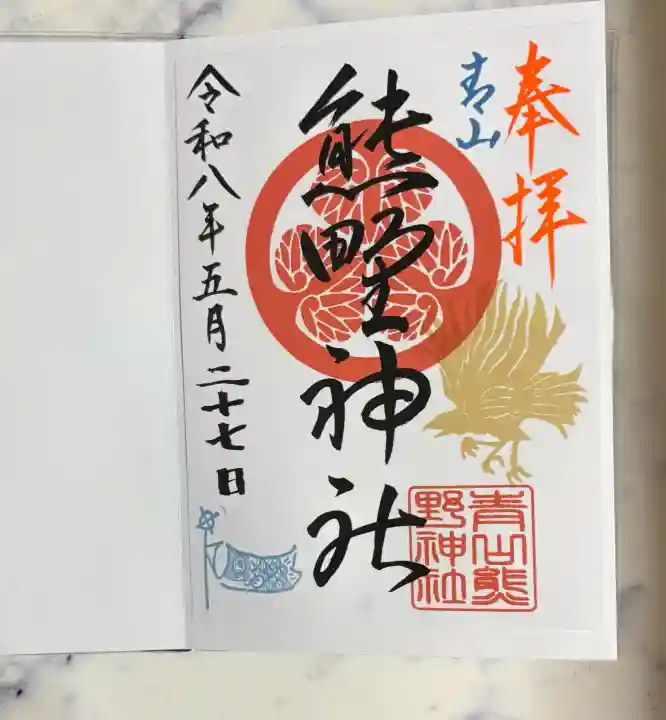 奉拝
青山
熊野神社
令和八年五月二十七日
青山熊
野神社